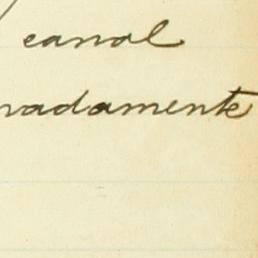 canal
nadamente